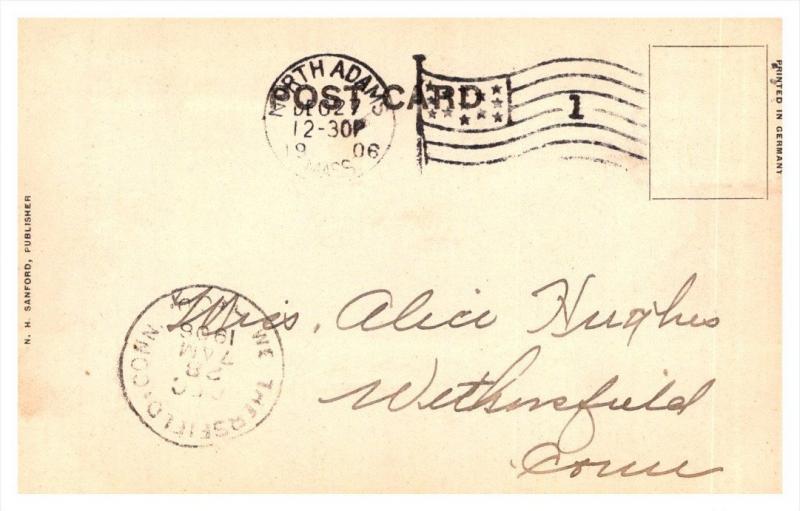 POST CARD
NORTH ADAMS
DEC 27
12-30P
19 06
MASS.
1
PRINTED IN GERMANY
N. H. SANFORD, PUBLISHER
WETHERSFIELD, CONN.
DEC
28
7 AM
1906
Miss. Alice Hughes
Wethersfield
Conn